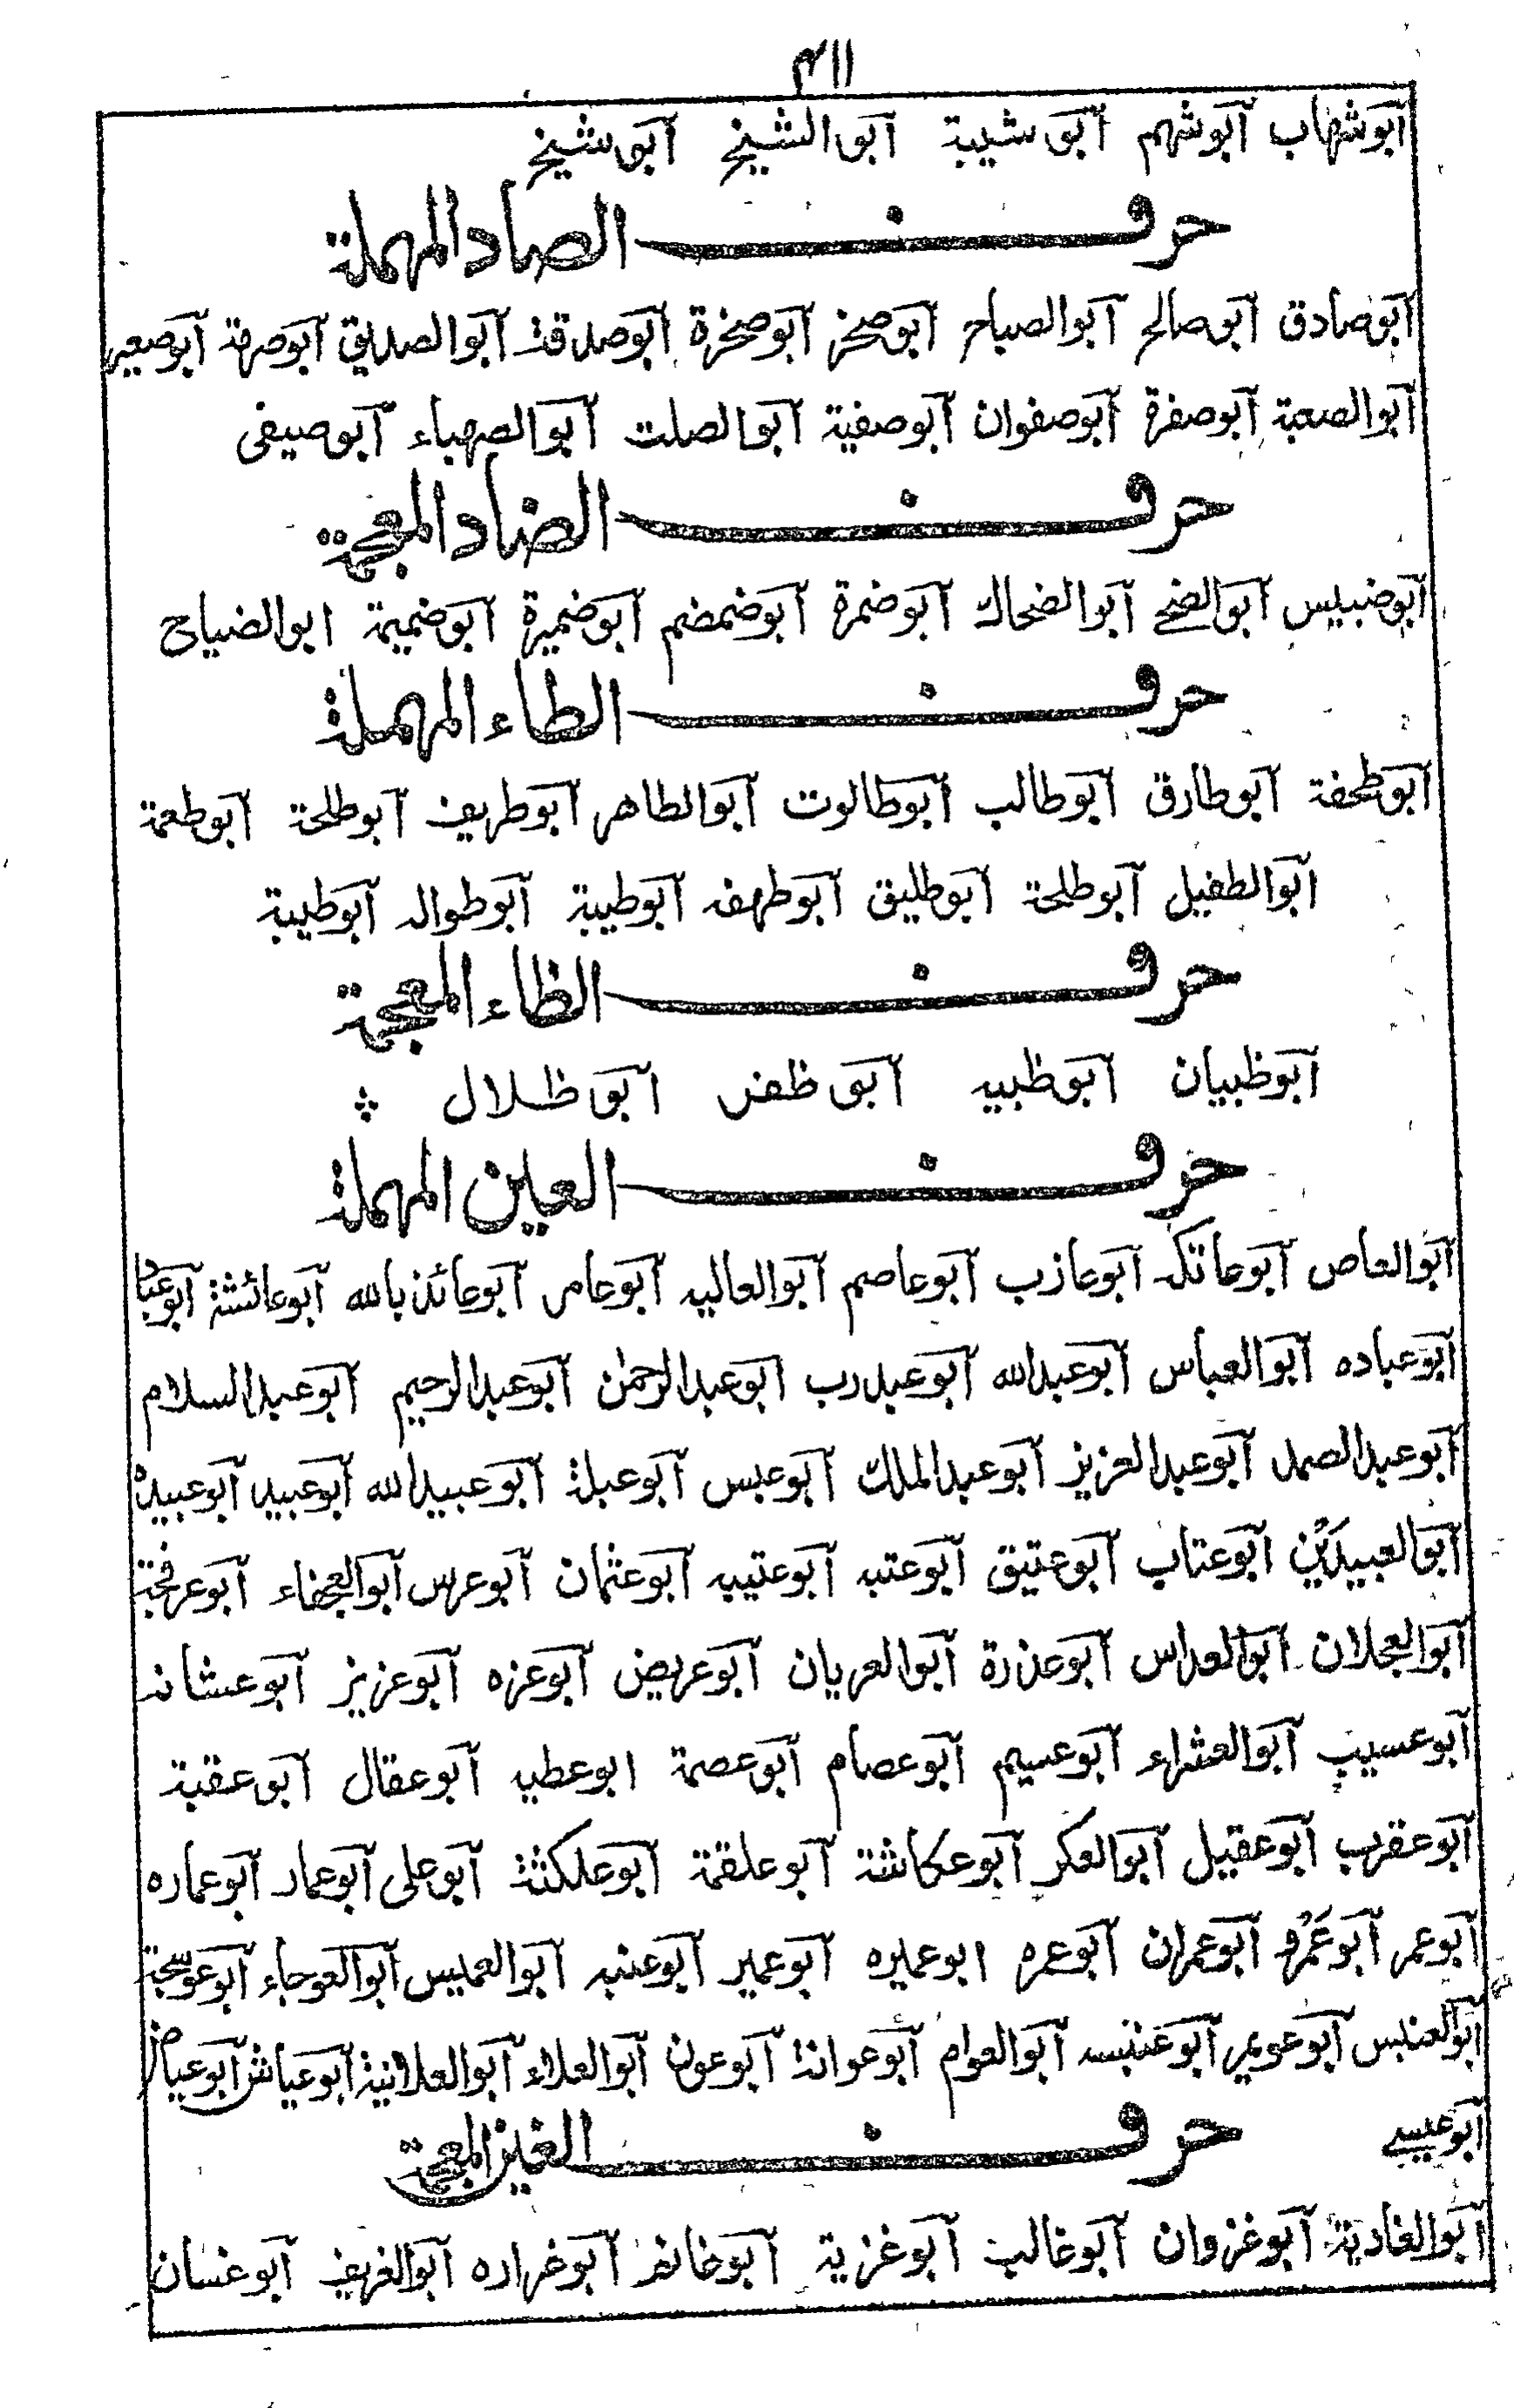 ۳۱۱
ابوشهاب ابوشهم ابو شيبة ابو الشيخ ابو شيخ
حرف الصاد المهملة
ابو صادق ابو صالح ابو الصباح ابو صخر ابو صخرة ابو صدقة ابو الصديق ابو صرمة ابو صعير
ابو الصعبة ابو صفرة ابو صفوان ابو صفية ابو الصلت ابو الصهباء ابو صيفى
حرف الضاد المعجمة
ابو ضبيس ابو الضحى ابو الضحاك ابو ضمرة ابو ضمضم ابو ضميرة ابو ضميمة ابو الضياح
حرف الطاء المهملة
ابو طخفة ابو طارق ابو طالب ابو طالوت ابو الطاهر ابو طريف ابو طلحة ابو طعمة
ابو الطفيل ابو طلحة ابو طليق ابو طهفه ابو طيبة ابو طواله ابو طيبة
حرف الظاء المعجمة
ابو ظبيان ابو ظبيه ابو ظفر ابو ظلال
حرف العين المهملة
ابو العاص ابو عاتكه ابو عازب ابو عاصم ابو العاليه ابو عامر ابو عائذ بالله ابو عائشة ابو عباد
ابو عباده ابو العباس ابو عبدالله ابو عبد رب ابو عبد الرحمن ابو عبد الرحيم ابو عبد السلام
ابو عبد الصمد ابو عبد العزيز ابو عبد الملك ابو عبس ابو عبلة ابو عبيد الله ابو عبيد ابو عبيدة
ابو العبيدَيْن ابو عتاب ابو عتيق ابو عتبه ابو عتيبه ابو عثمان ابو عرس ابو العجفاء ابو عرفجة
ابو العجلان ابو العداس ابو عذرة ابو العريان ابو عريض ابو عزه ابو عزيز ابو عشانه
ابو عسيب ابو العشراء ابو عسيم ابو عصام ابو عصمة ابو عطيه ابو عقال ابو عقبة
ابو عقرب ابو عقيل ابو العكر ابو عكاشة ابو علقمة ابو علكثة ابو على ابو عمار ابو عماره
ابو عمر ابو عَمْرو ابو عمران ابو عمره ابو عميره ابو عمير ابو عنبه ابو العميس ابو العوجاء ابو عوسجة
ابو العنبس ابو عويمر ابو عنبسه ابو العوام ابو عوانة ابو عون ابو العلاء ابو العلانية ابو عياش ابو عياض
ابو عيسے
حرف الغين المعجمة
ابو الغادية ابو غزوان ابو غالب ابو غزية ابو غانم ابو غراره ابو الغريف ابو غسان